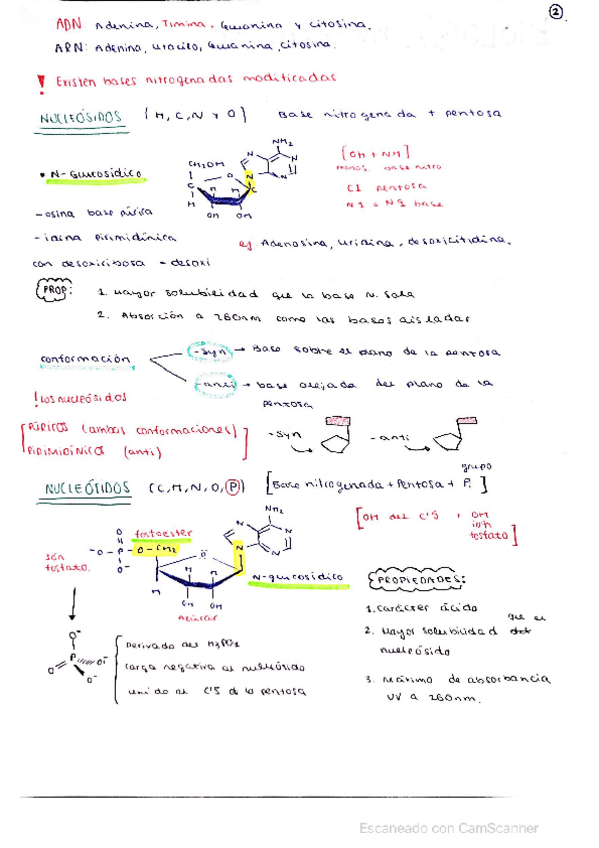 2
ADN Adenina, Timina, Guanina y Citosina.
ARN: Adenina, Uracilo, Guanina, citosina.
! Existen bases nitrogenadas modificadas
NUCLEÓSIDOS (H, C, N y O) Base nitrogenada + pentosa
• N-Glucosídico
[OH + NH]
base nitro
C1 pentosa
N1 o N9 base
NH2
CH2OH
-osina base púrica
-idina pirimidínica
ej Adenosina, uridina, desoxicitidina.
con desoxiribosa - desoxi
PROP:
1. Mayor solubilidad que la base N. sola
2. Absorción a 260nm como las bases aisladas
conformación
-syn → Base sobre el plano de la pentosa
-anti → base alejada del plano de la
pentosa
! Los nucleósidos
PÚRICOS (ambas conformaciones)
PIRIMIDÍNICOS (anti)
-syn
-anti
NUCLEÓTIDOS (C, H, N, O, P) [Base nitrogenada + Pentosa + grupo P.]
[OH del C'5 + OH
ion
fosfato]
NH2
fosfoester
O-CH2
N-glucosídico
Azúcar
ión
fosfato.
PROPIEDADES:
1. Carácter ácido
2. Mayor solubilidad que el
nucleósido
3. Máximo de absorbancia
UV a 260nm.
Derivado del H3PO4
carga negativa al nucleósido
unido al C'5 de la pentosa
Escaneado con CamScanner